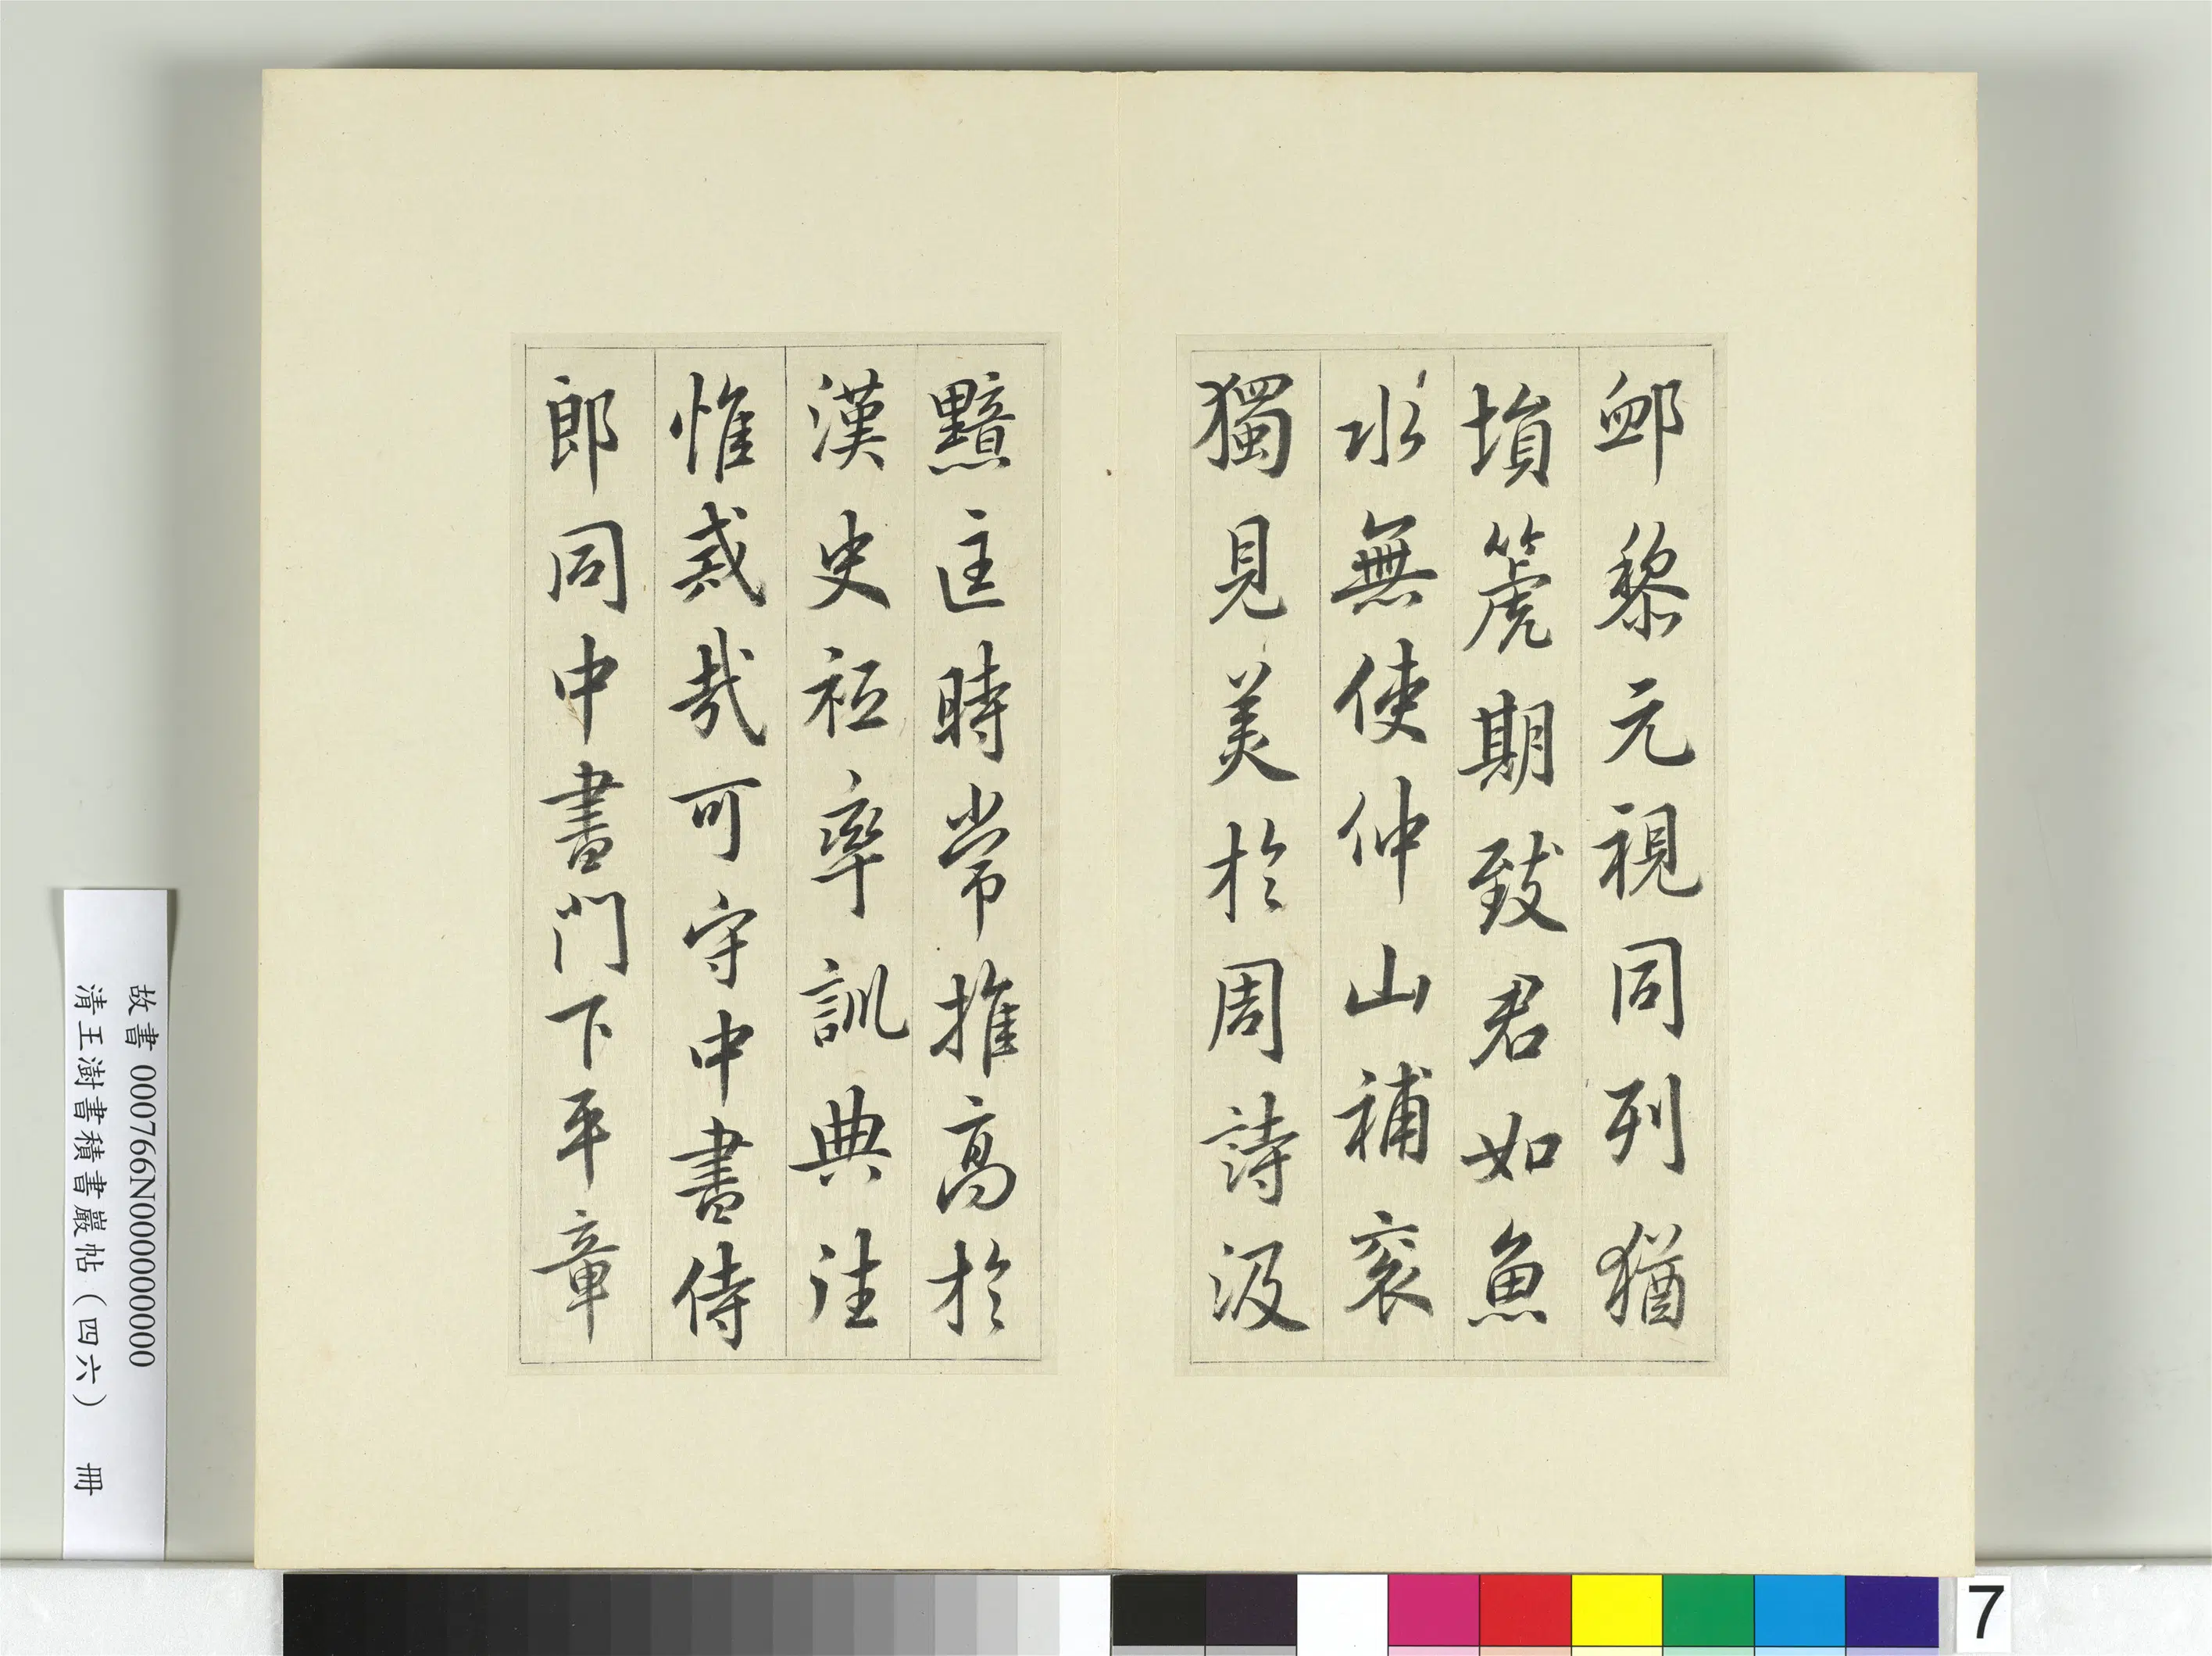 卹黎元視同列猶
塤箎期致君如魚
水無使仲山補衮
獨見美於周詩汲
黯匡時常推高於
漢史祗率訓典往
惟戒哉可守中書侍
郎同中書門下平章
故書 000766N000000000
清王澍書積書巖帖（四六） 冊
7